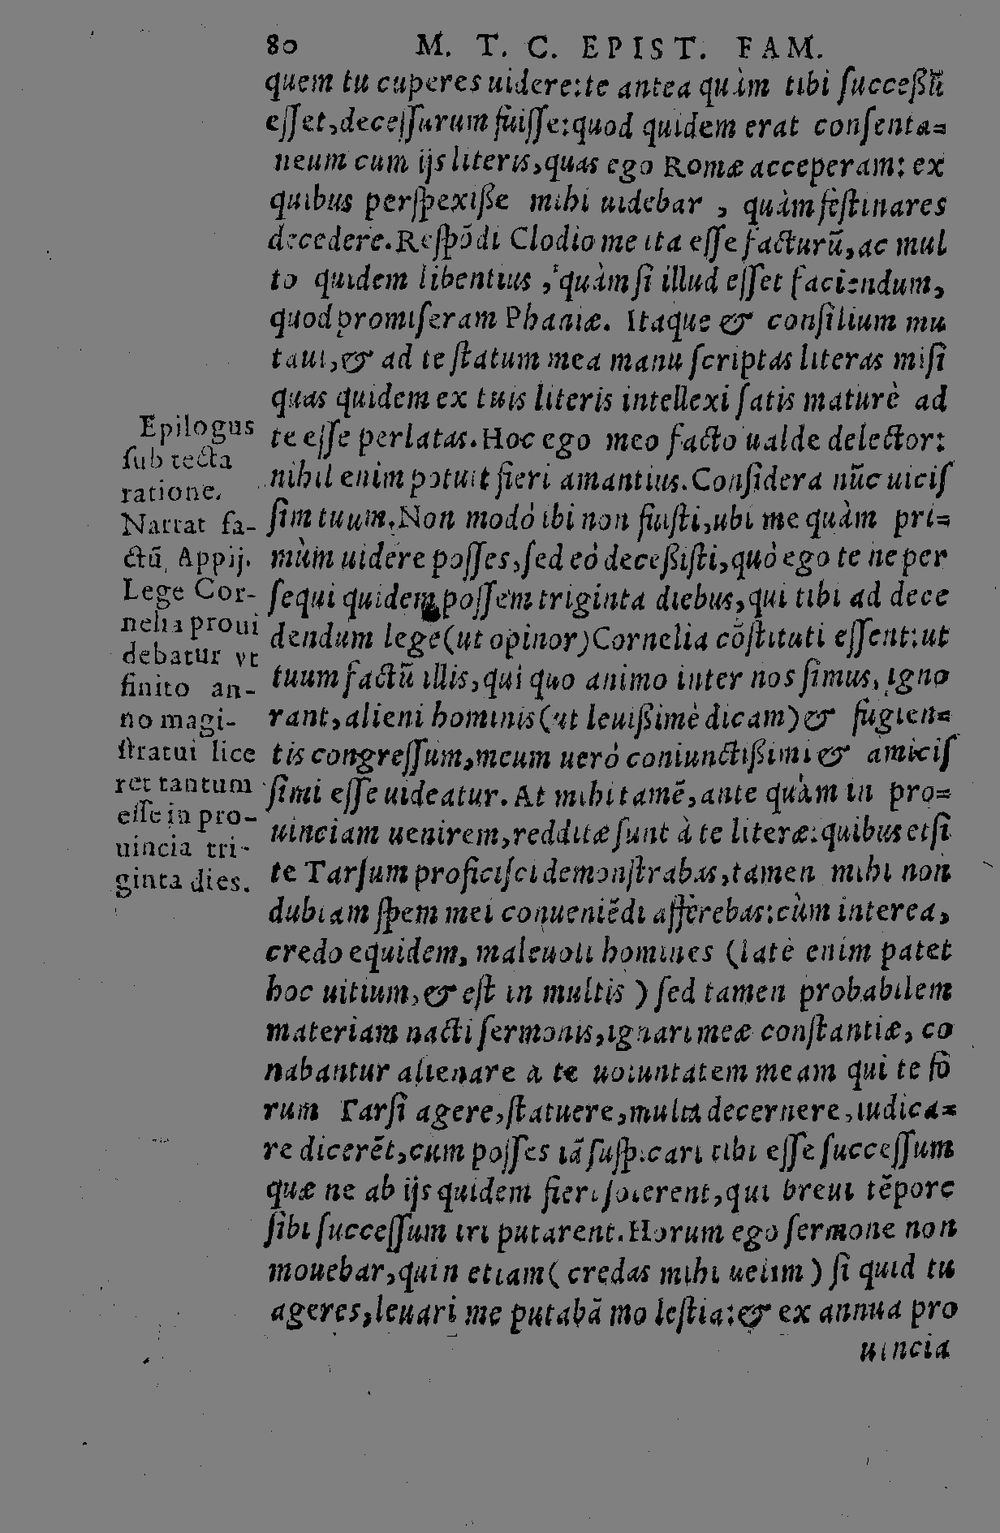 80 M. T. C. EPIST. FAM.
quem tu cuperes uidere:te antea quàm tibi ſucceßũ
eſſet,deceſſurum fuiſſe:quod quidem erat conſenta=
neum cum ijs literis,quas ego Romæ acceperam: ex
quibus perſpexiſſe mihi uidebar , quàm feſtinares
decedere.Reſpõdi Clodio me ita eſſe facturũ,ac mul
to quidem libentius , quàm ſi illud eſſet faciendum,
quod promiſeram Phaniæ. Itaque & conſilium mu
taui,& ad te ſtatum mea manu ſcriptas literas miſi
quas quidem ex tuis literis intellexi ſatis maturè ad
te eſſe perlatas.Hoc ego meo facto ualde delector:
nihil enim potuit fieri amantius.Conſidera nũc uiciſ
ſim tuum.Non modó ibi non fuiſti,ubi me quàm pri=
mùm uidere poſſes,ſed eó deceßiſti,quò ego te ne per
ſequi quidem poſſem triginta diebus,qui tibi ad dece
dendum lege(ut opinor)Cornelia cõſtituti eſſent:ut
tuum factũ illis,qui quo animo inter nos ſimus, igno
rant,alieni hominis(ut leuißimè dicam)& fugien=
tis congreſſum,meum ueró coniunctißimi & amiciſ
ſimi eſſe uideatur. At mihi tamẽ,ante quàm in pro=
uinciam uenirem,redditæ ſunt à te literæ:quibus etſi
te Tarſum proficiſci demonſtrabas,tamen mihi non
dubiam ſpem mei conueniẽdi afferebas:cùm interea,
credo equidem, maleuoli homines (latè enim patet
hoc uitium,& eſt in multis ) ſed tamen probabilem
materiam nacti ſermonis,ignari meæ conſtantiæ, co
nabantur alienare a te uoluntatem meam qui te fõ
rum Tarſi agere,ſtatuere,multa decernere,iudica=
re dicerẽt,cum poſſes iã ſuſpicari tibi eſſe ſucceſſum
quæ ne ab ijs quidem fieri ſolerent,qui breui tẽpore
ſibi ſucceſſum iri putarent.Horum ego ſermone non
mouebar,quin etiam( credas mihi uelim ) ſi quid tu
ageres,leuari me putabã mo leſtia:& ex annua pro
uincia
Epilogus
ſub tecta
ratione.
Narrat fa-
ctũ Appij.
Lege Cor-
nelia proui
debatur vt
finito an-
no magi-
ſtratui lice
ret tantum
eſſe in pro-
uincia tri-
ginta dies.